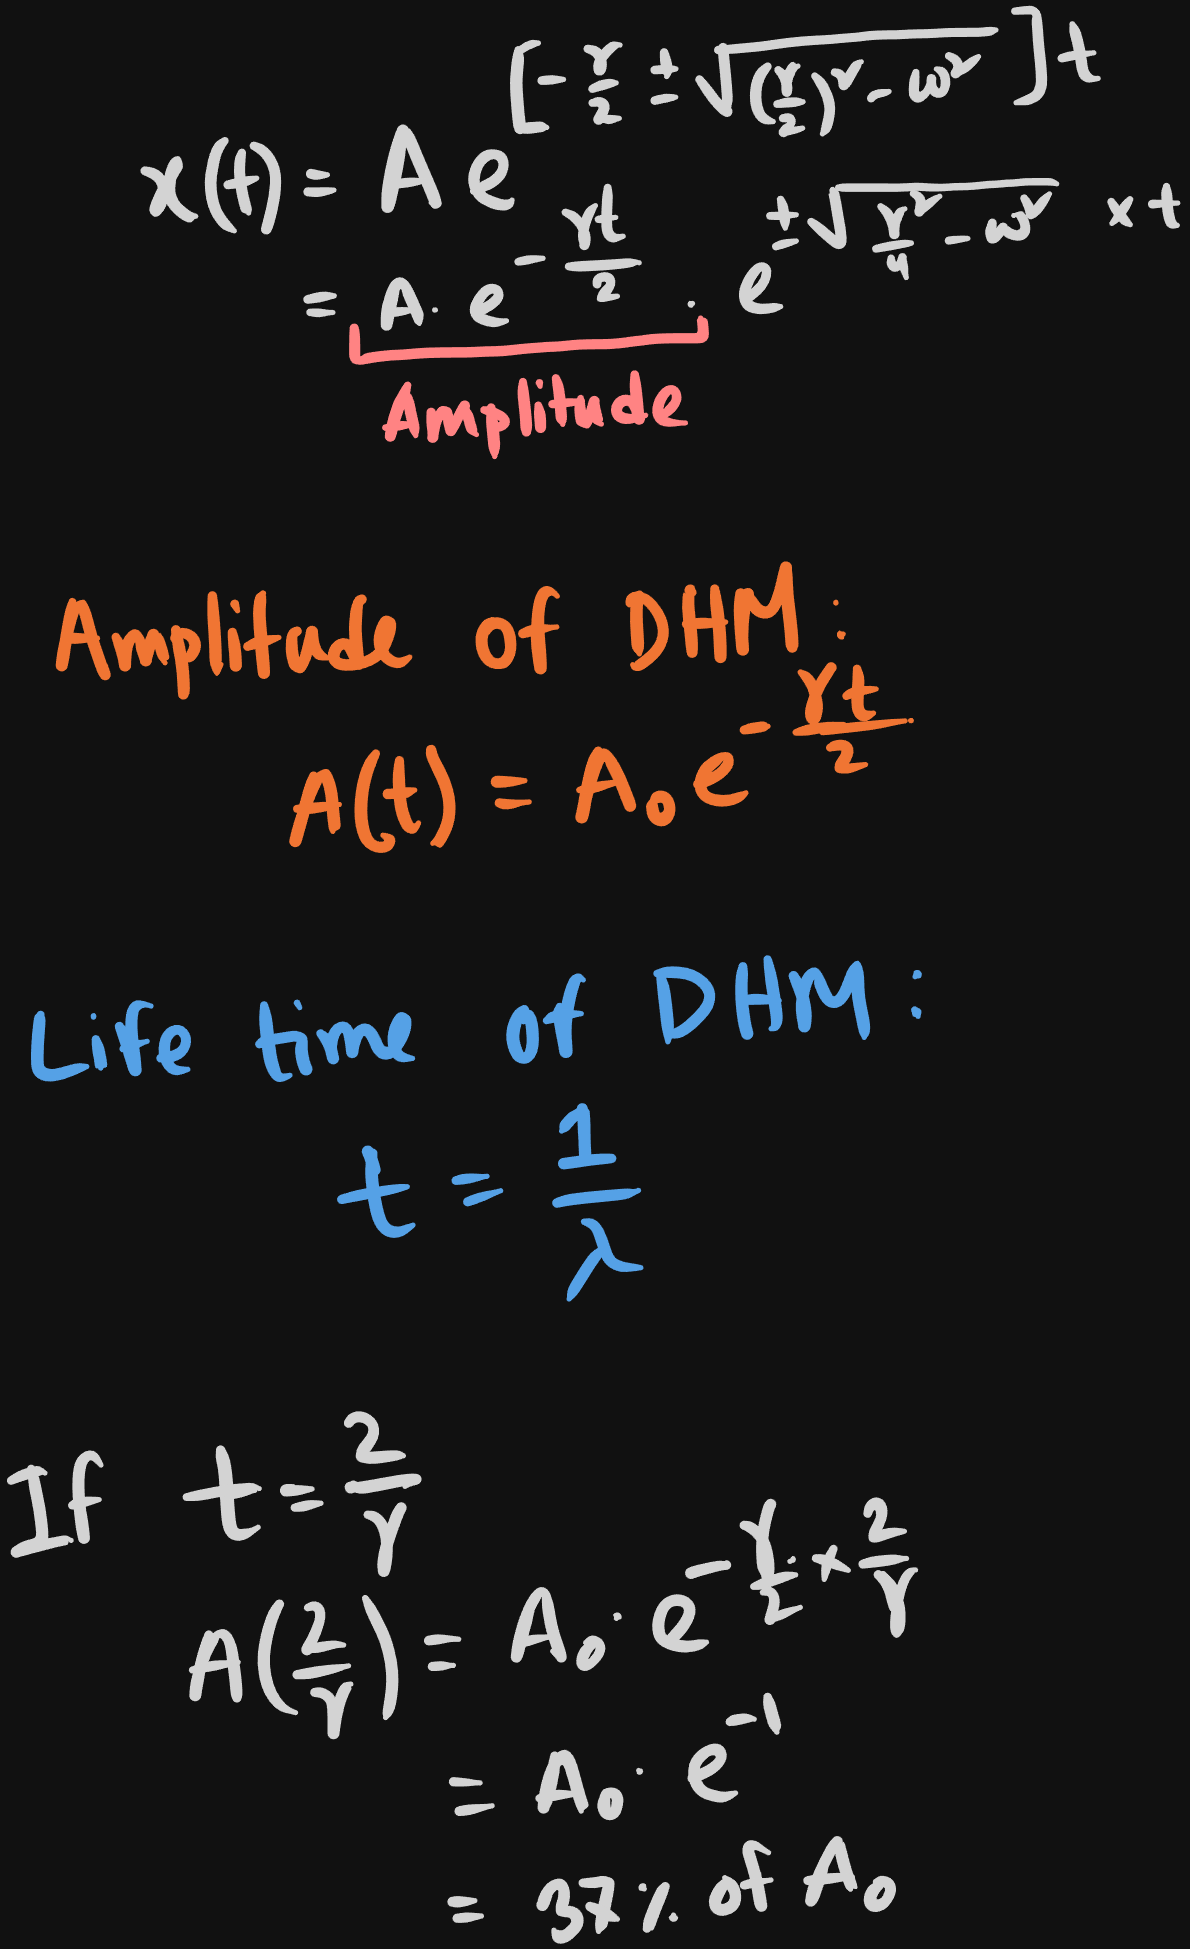 x(t) = A e^{[-γ/2 ± √((γ/2)² - ω²)]t}
= A · e^{-γt/2} · e^{± √(γ²/4 - ω²) × t}
Amplitude
Amplitude of DHM:
A(t) = A₀ e^{-γt/2}
Life time of DHM:
t = 1/λ
If t = 2/γ
A(2/γ) = A₀ · e^{-γ/2 × 2/γ}
= A₀ · e^{-1}
= 37% of A₀